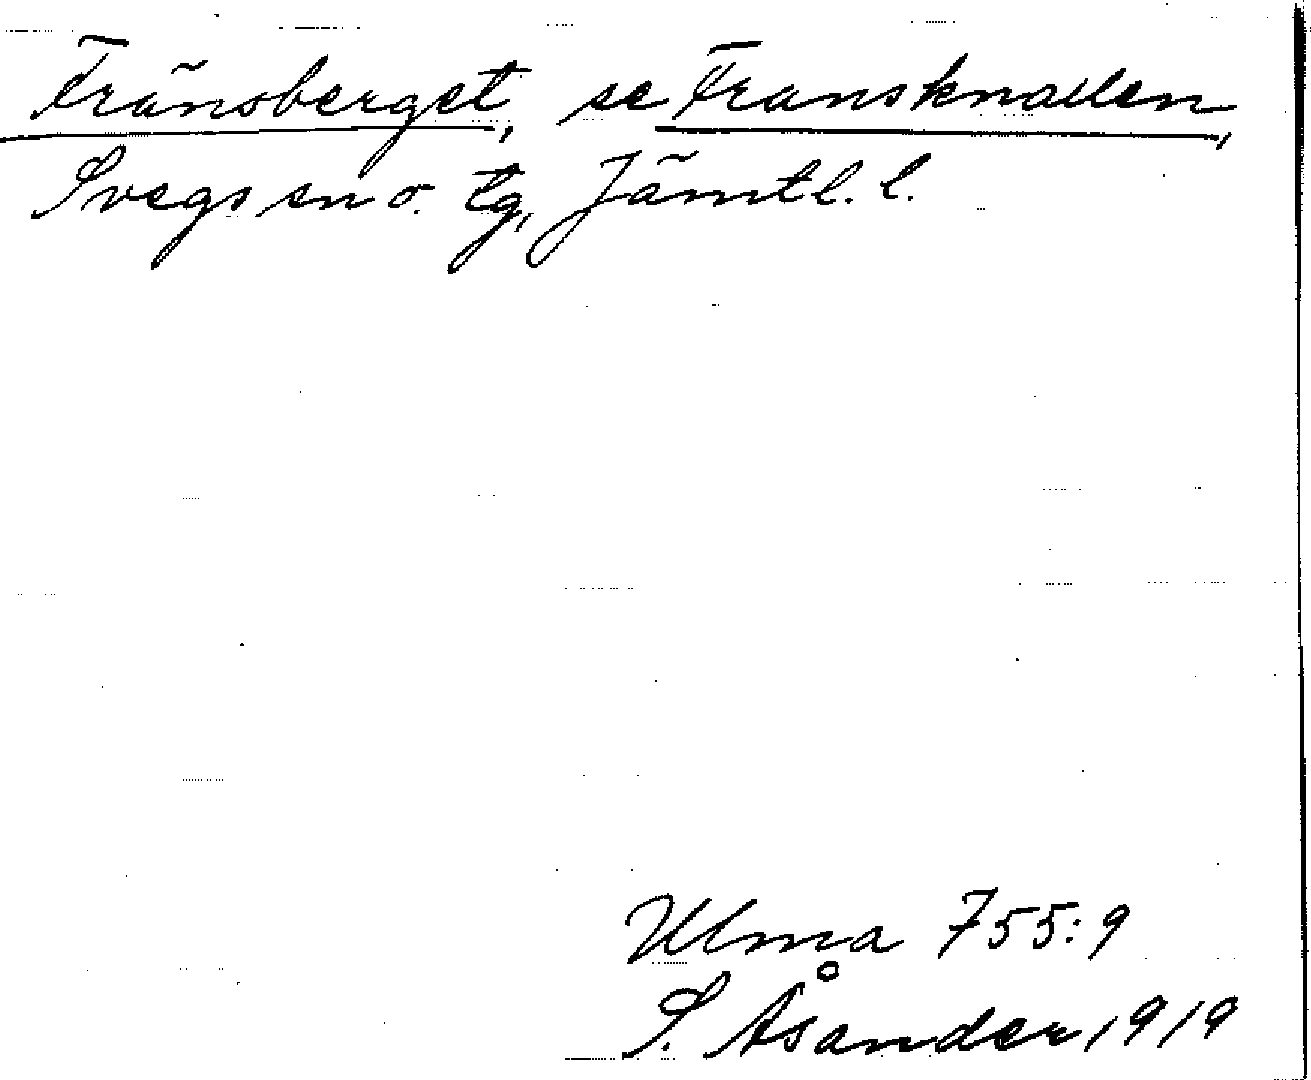 Fränsberget, se Fransknallen,
Svegs sn o. tg, Jämtl. l.
Ulma 755:9
S. Åsander 1919